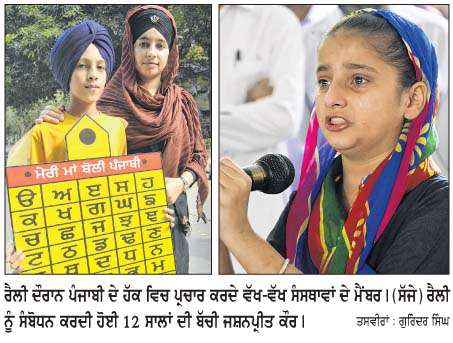 ਮੇਰੀ ਮਾਂ ਬੋਲੀ ਪੰਜਾਬੀ
ੳ ਅ ੲ ਸ ਹ
ਕ ਖ ਗ ਘ ਙ
ਚ ਛ ਜ ਝ ਞ
ਟ ਠ ਡ ਢ ਣ
ਰੈਲੀ ਦੌਰਾਨ ਪੰਜਾਬੀ ਦੇ ਹੱਕ ਵਿਚ ਪ੍ਰਚਾਰ ਕਰਦੇ ਵੱਖ-ਵੱਖ ਸੰਸਥਾਵਾਂ ਦੇ ਮੈਂਬਰ। (ਸੱਜੇ) ਰੈਲੀ
ਨੂੰ ਸੰਬੋਧਨ ਕਰਦੀ ਹੋਈ 12 ਸਾਲਾਂ ਦੀ ਬੱਚੀ ਜਸ਼ਨਪ੍ਰੀਤ ਕੌਰ। ਤਸਵੀਰਾਂ : ਗੁਰਿੰਦਰ ਸਿੰਘ